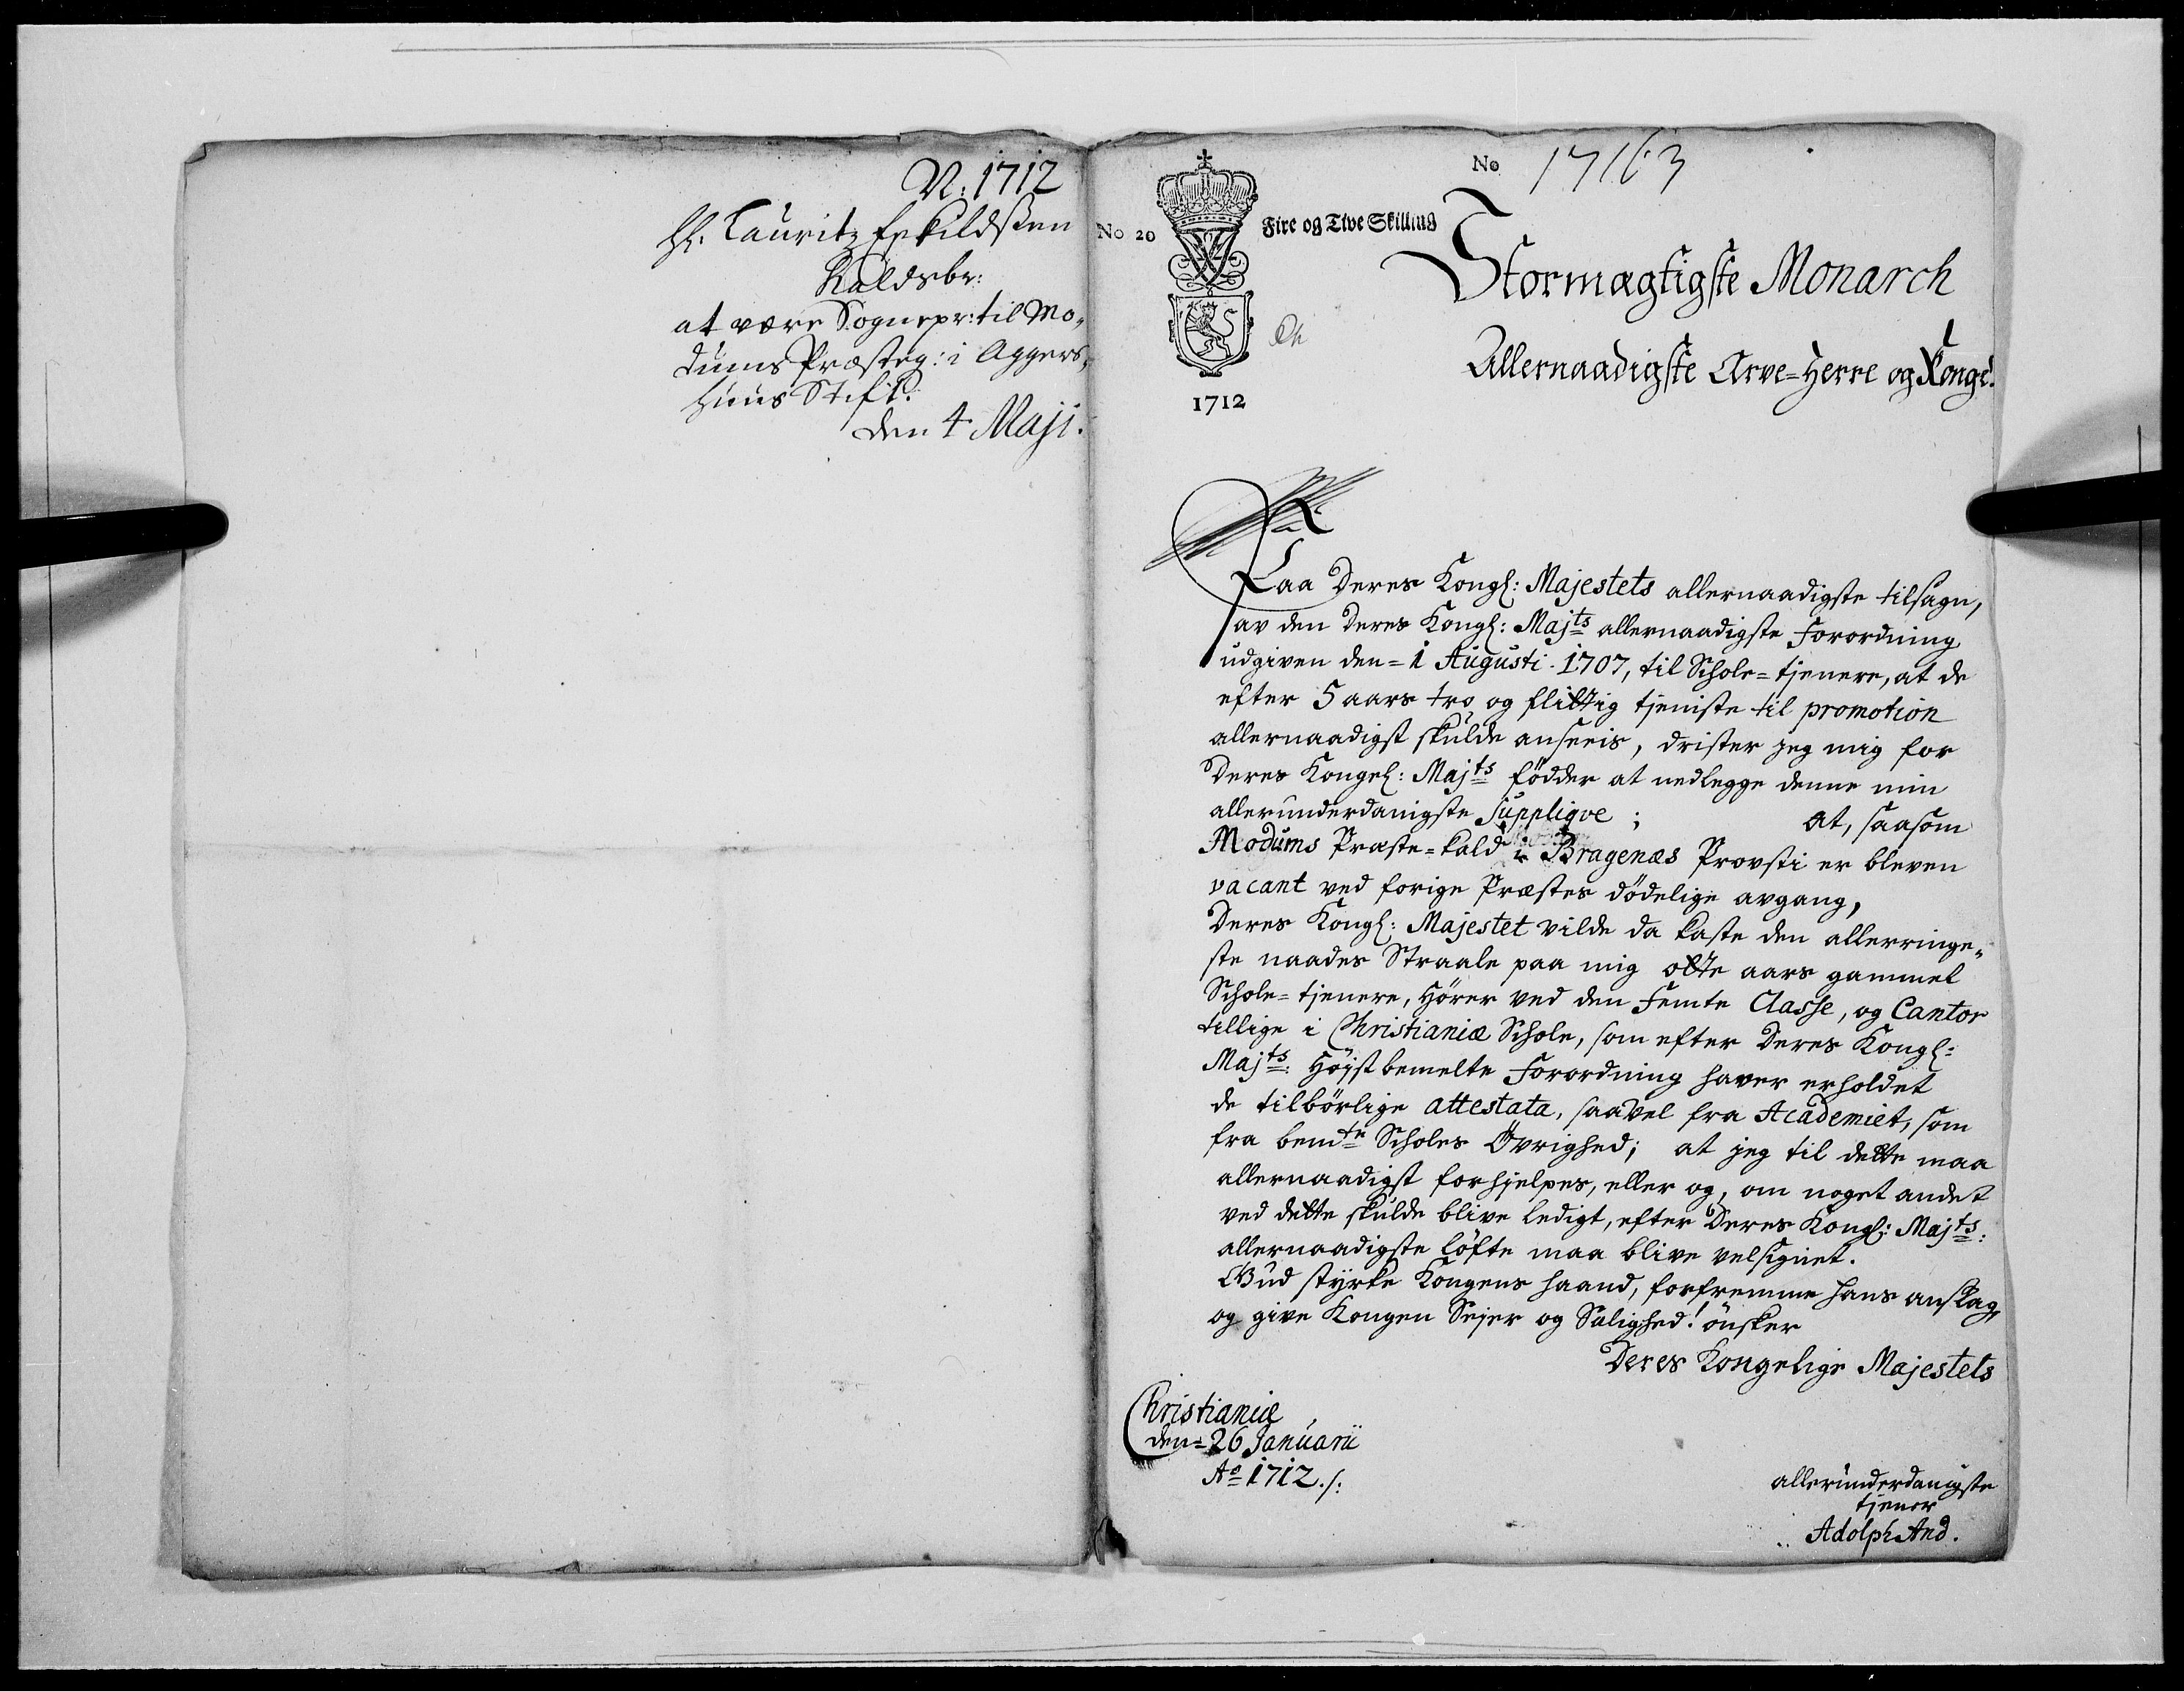 N. 1712
Hr. Lauritz Eskildssen
Kaldsbr:
at være Sognepr: til Mo-
dums Præsteg: i Aggers-
huus Stift.
den 4 Maji.
No 17163
No 20
Fire og Tive Skilling
1712
Stormægtigste Monarch
Allernaadigste Arve=Herre og Konge.
Paa Deres Kongl: Majestets allernaadigste tilsagn,
av den Deres Kongl: Majts allernaadigste Forordning
udgiven den = 1 Augusti 1707, til Schole=tjenere, at de
efter 5 aars tro og flittig tjeniste til promotion
allernaadigst skulde anseeis, drister jeg mig for
Deres Kongel: Majts födder at nedlegge denne min
allerunderdanigste Suppliqve; at, saasom
Modums Præste=kald i Bragenæs Provsti er bleven
vacant ved forige Præstes dödelige avgang,
Deres Kongl: Majestet vilde da kaste den allerringe-
ste naades Straale paa mig otte aars gammel
Schole=tjenere, Hörer ved den Femte Classe, og Cantor
tillige i Christianiæ Schole, som efter Deres Kongl:
Majts: Höjstbemelte Forordning haver erholdet
de tilbörlige attestata, saavel fra Academiet, som
fra bemte Scholes Övrighed; at jeg til dette maa
allernaadigst forhjelpes, eller og, om noget andet
ved dette skulde blive ledigt, efter Deres Kongl: Majts:
allernaadigste löfte maa blive velsignet.
Gud styrke Kongens haand, forfremme hans anslag,
og give Kongen Sejer og Salighed! önsker
Deres Kongelige Majestets
Christianiæ
den = 26 Januarii
Ao 1712./:
allerunderdanigste
tjener
Adolph And.